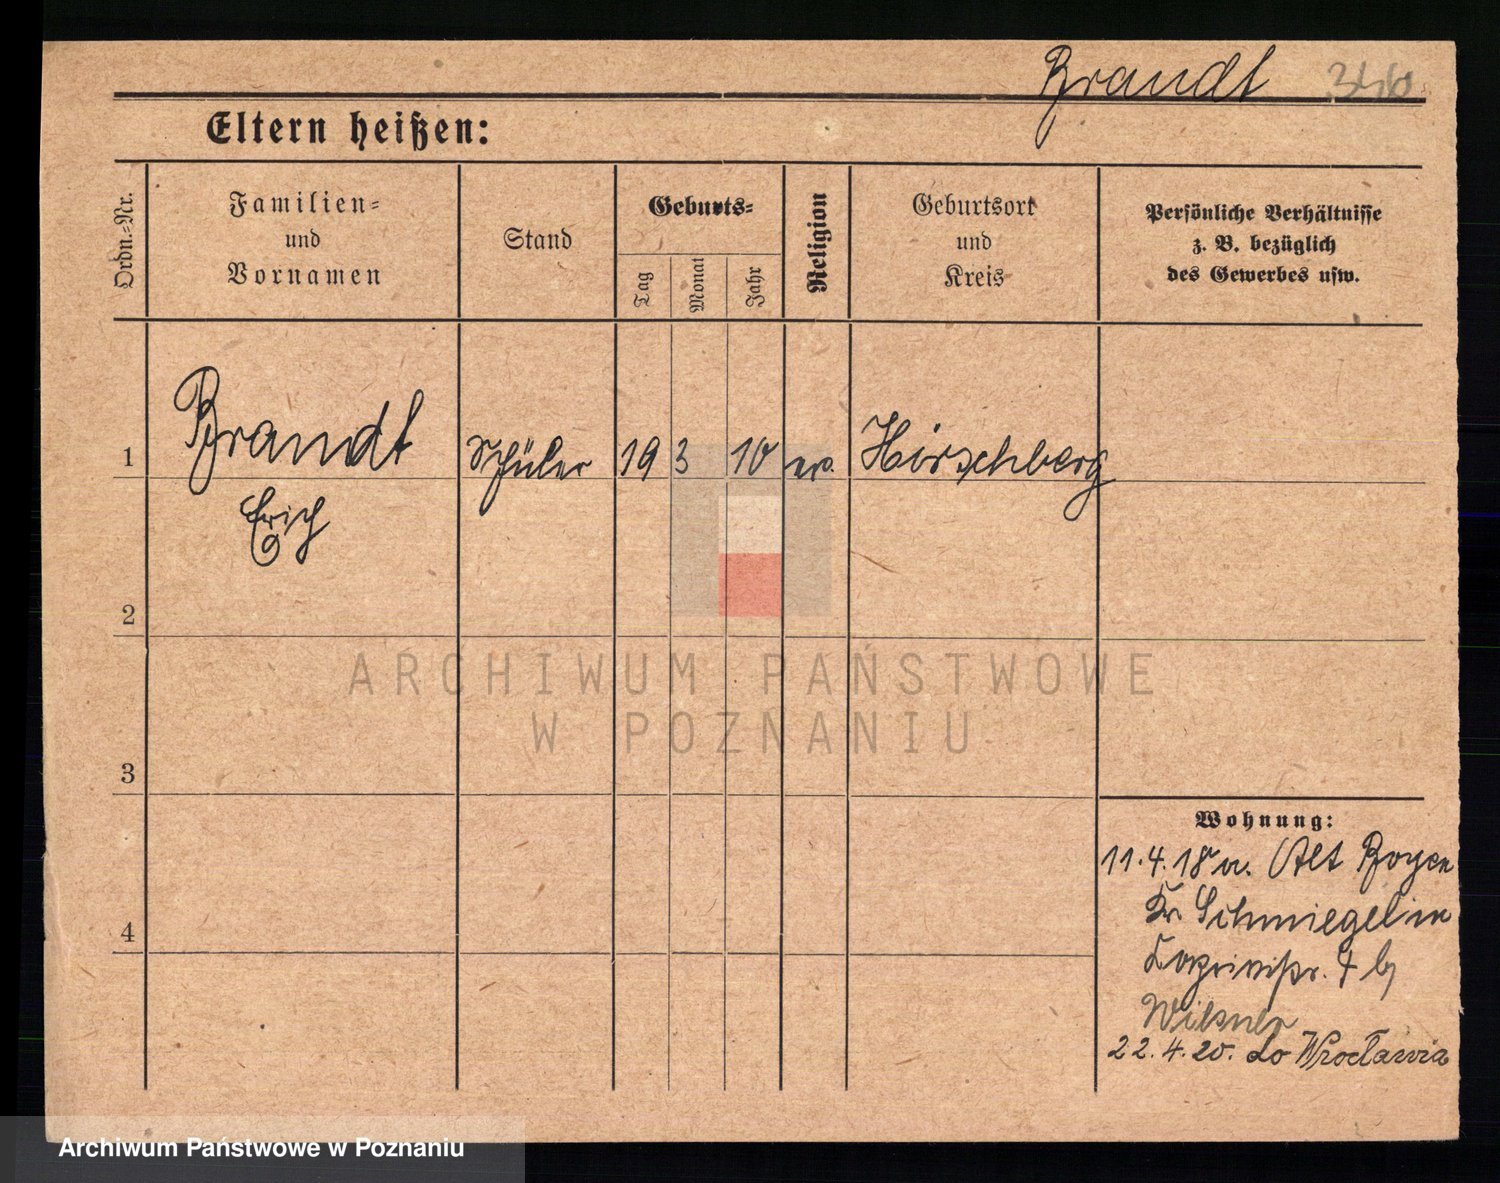 Brandt 346
Eltern heißen:
Ordn.-Nr.
Familien-
und
Vornamen
Stand
Geburts-
Tag
Monat
Jahr
Religion
Geburtsort
und
Kreis
Persönliche Verhältnisse
z. B. bezüglich
des Gewerbes usw.
1 Brandt Schüler 19 3 10 ev. Hirschberg
Erich
2
3
4
Wohnung:
11.4.18 v. Alt Boyen
Kr Schmiegel in
4 b/
22.4.20. do Wrocławia
ARCHIWUM PAŃSTWOWE
W POZNANIU
Archiwum Państwowe w Poznaniu